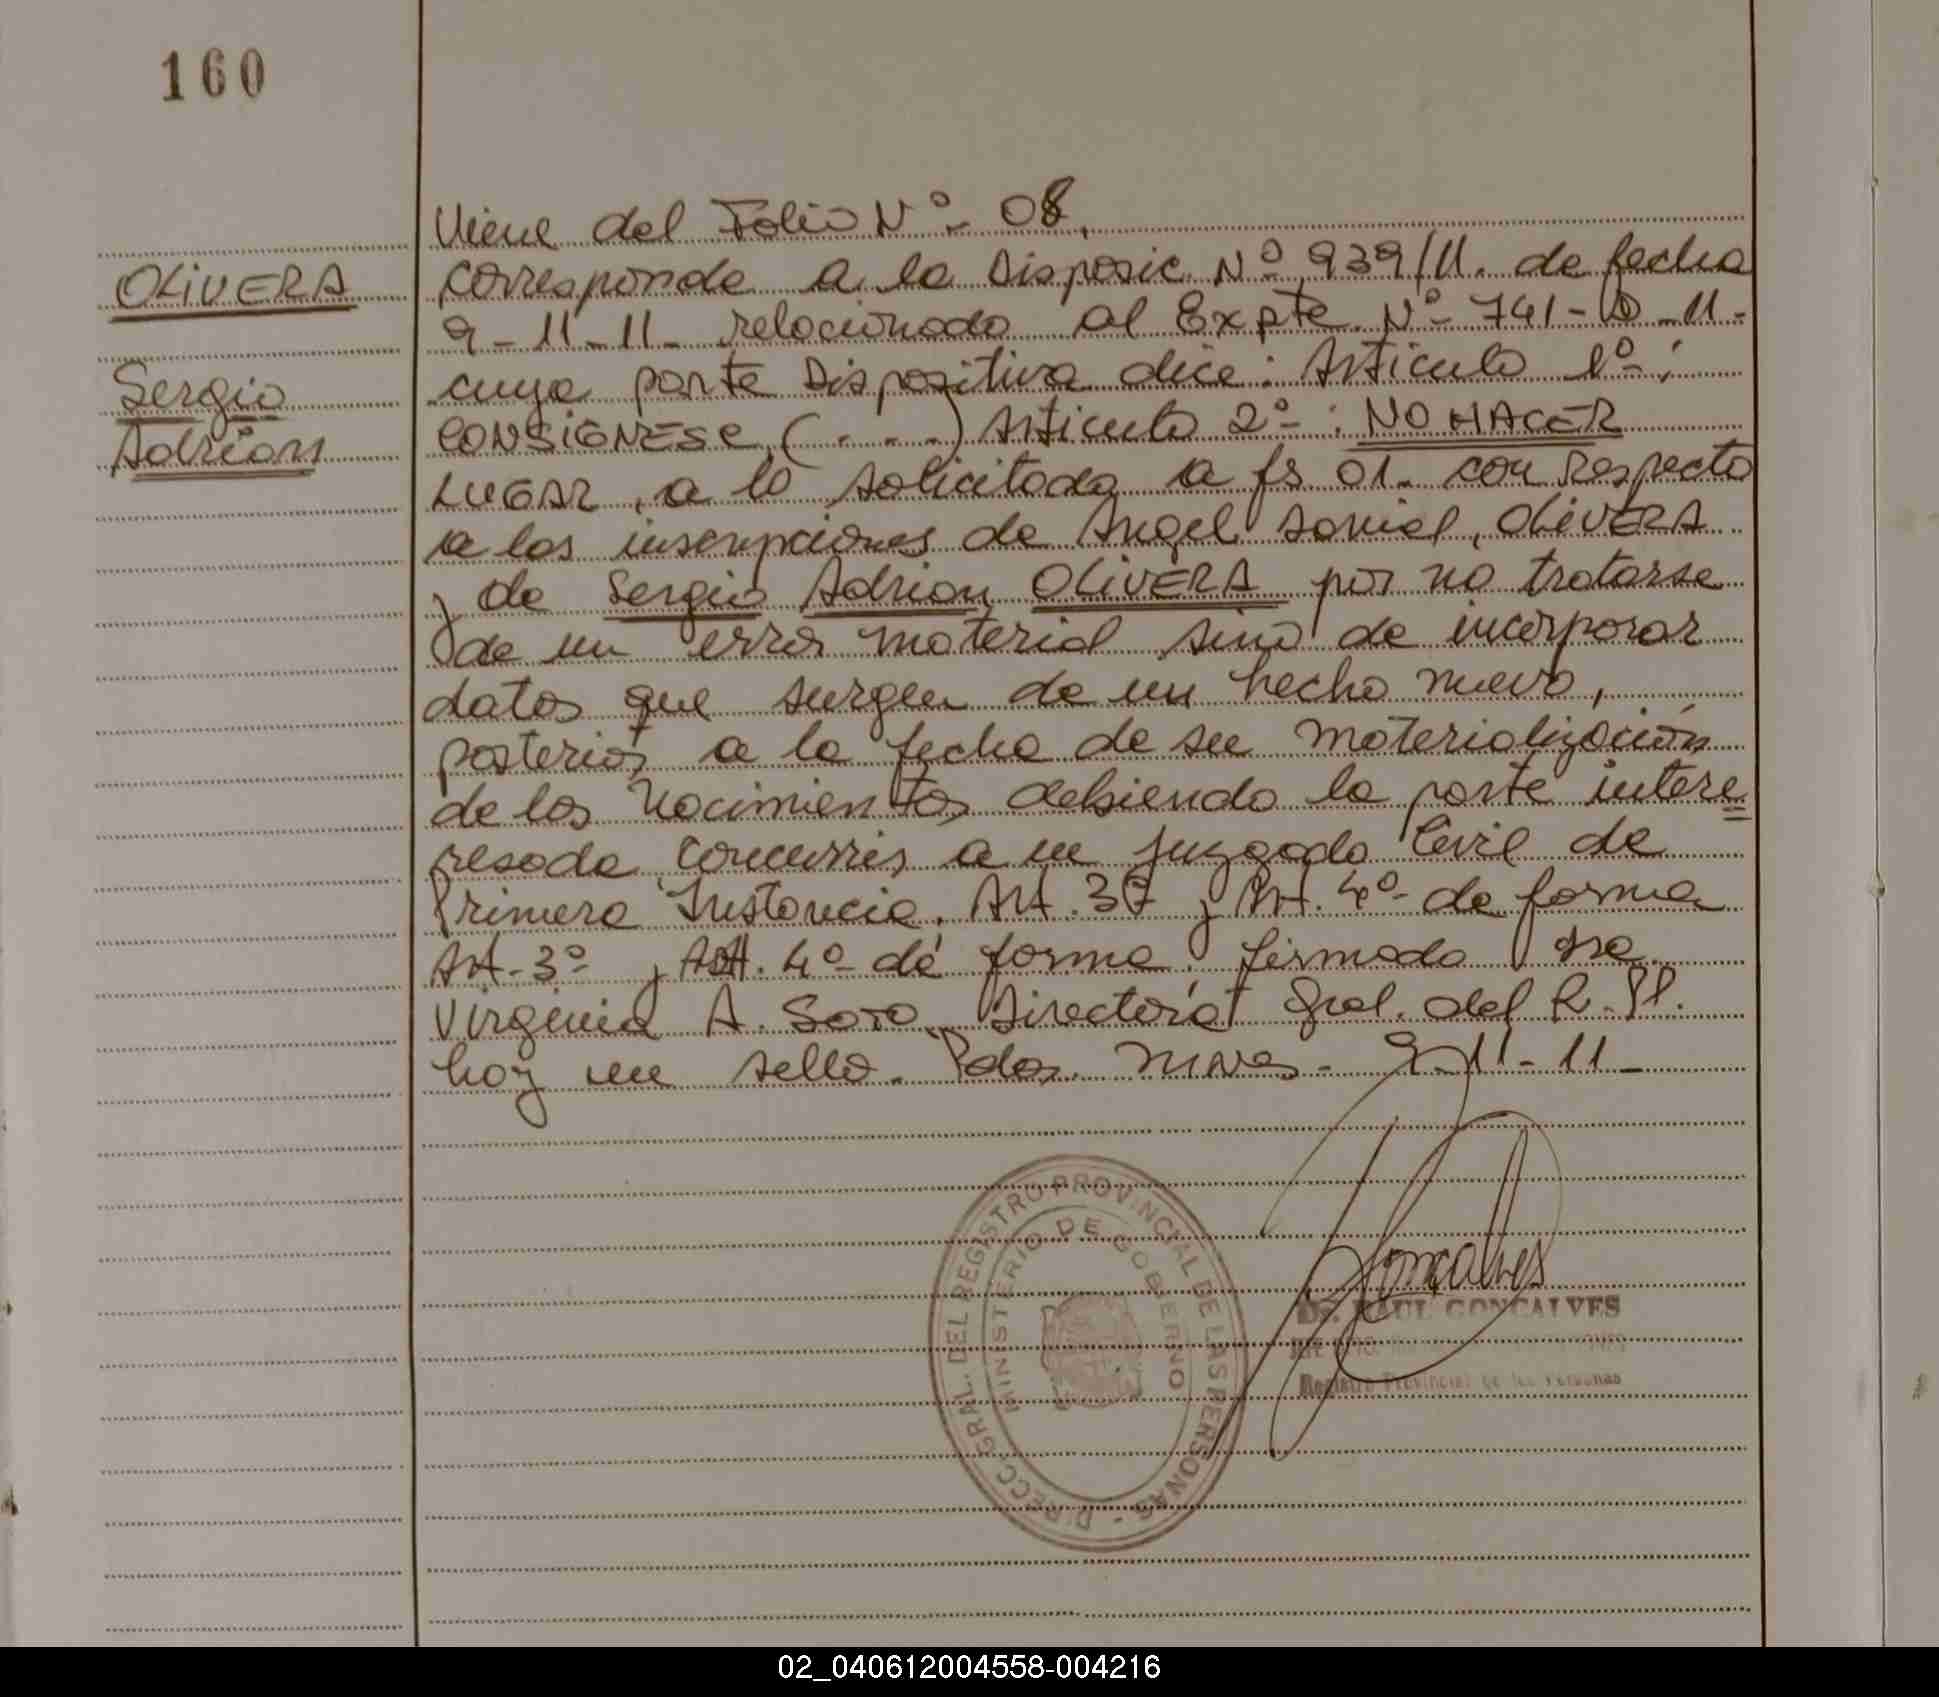 160
Viene del Folio Nº- 08.
OLIVERA
Corresponde a la Disposic. Nº 939/11. de fecha
9-11-11- relacionado al Expte. Nº- 741-D-11-
Sergio
cuya parte Dispositiva dice: Artículo 1º-:
Adrian
CONSIGNESE (....) Artículo 2º-: NO HACER
LUGAR, a lo solicitado a fs 01. con respecto
a las inscripciones de Angel Daniel, OLIVERA
y de Sergio Adrian OLIVERA por no tratarse
de un error material sino de incorporar
datos que surgen de un hecho nuevo,
posterior a la fecha de su materialización
de los Nacimientos debiendo la parte intere=
resada concurrir a un juzgado Civil de
Primera Instancia. Art. 3º y Art. 4º- de forma
Art- 3º- y Art. 4º- de forma. firmado Dra.
Virginia A. Soto Directora Gral. del R.PP.
hoy un sello. Pdas. Mnes- 9-11-11-
DIRECC. GRAL. DEL REGISTRO PROVINCIAL DE LAS PERSONAS -
MINISTERIO DE GOBIERNO
Goncalves
Ds. RAUL GONCALVES
Registro Provincial de las Personas
02_040612004558-004216